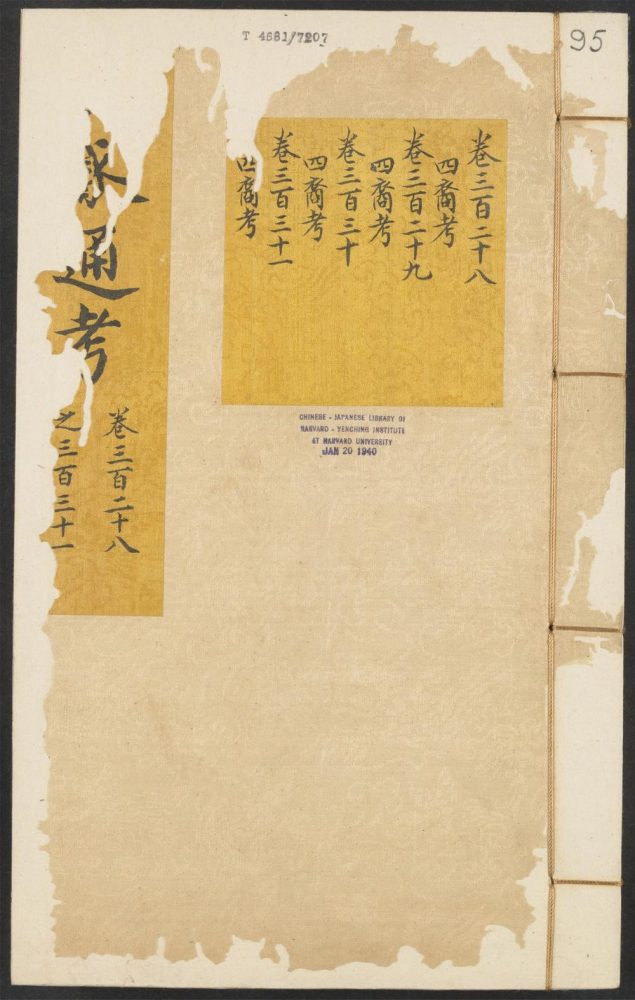 T 4681/7207
95
卷三百二十八
四裔考
卷三百二十九
四裔考
卷三百三十
四裔考
卷三百三十一
四裔考
通考
卷三百二十八
之三百三十一
CHINESE - JAPANESE LIBRARY OF
HARVARD - YENCHING INSTITUTE
AT HARVARD UNIVERSITY
JAN 20 1940